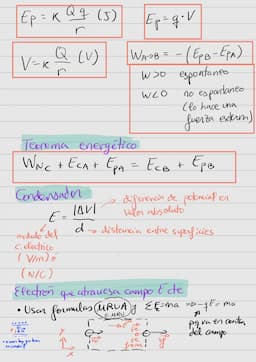 Ep = K Q q / r (J)
Ep = q · V
V = K Q / r (V)
W A→B = - (EpB - EpA)
W>0 espontaneo
W<0 no espontaneo
(lo hace una
fuerza externa)
Teorema energético
WNC + ECA + EPA = ECB + EPB
Condensador
E = |ΔV| / d
diferencia de potencial en
valor absoluto
distancia entre superficies
modulo del
c. electrico
(V/m) o
(N/C)
Electrón que atraviesa campo E cte
• Usar formulas MRUA y ΣF=ma